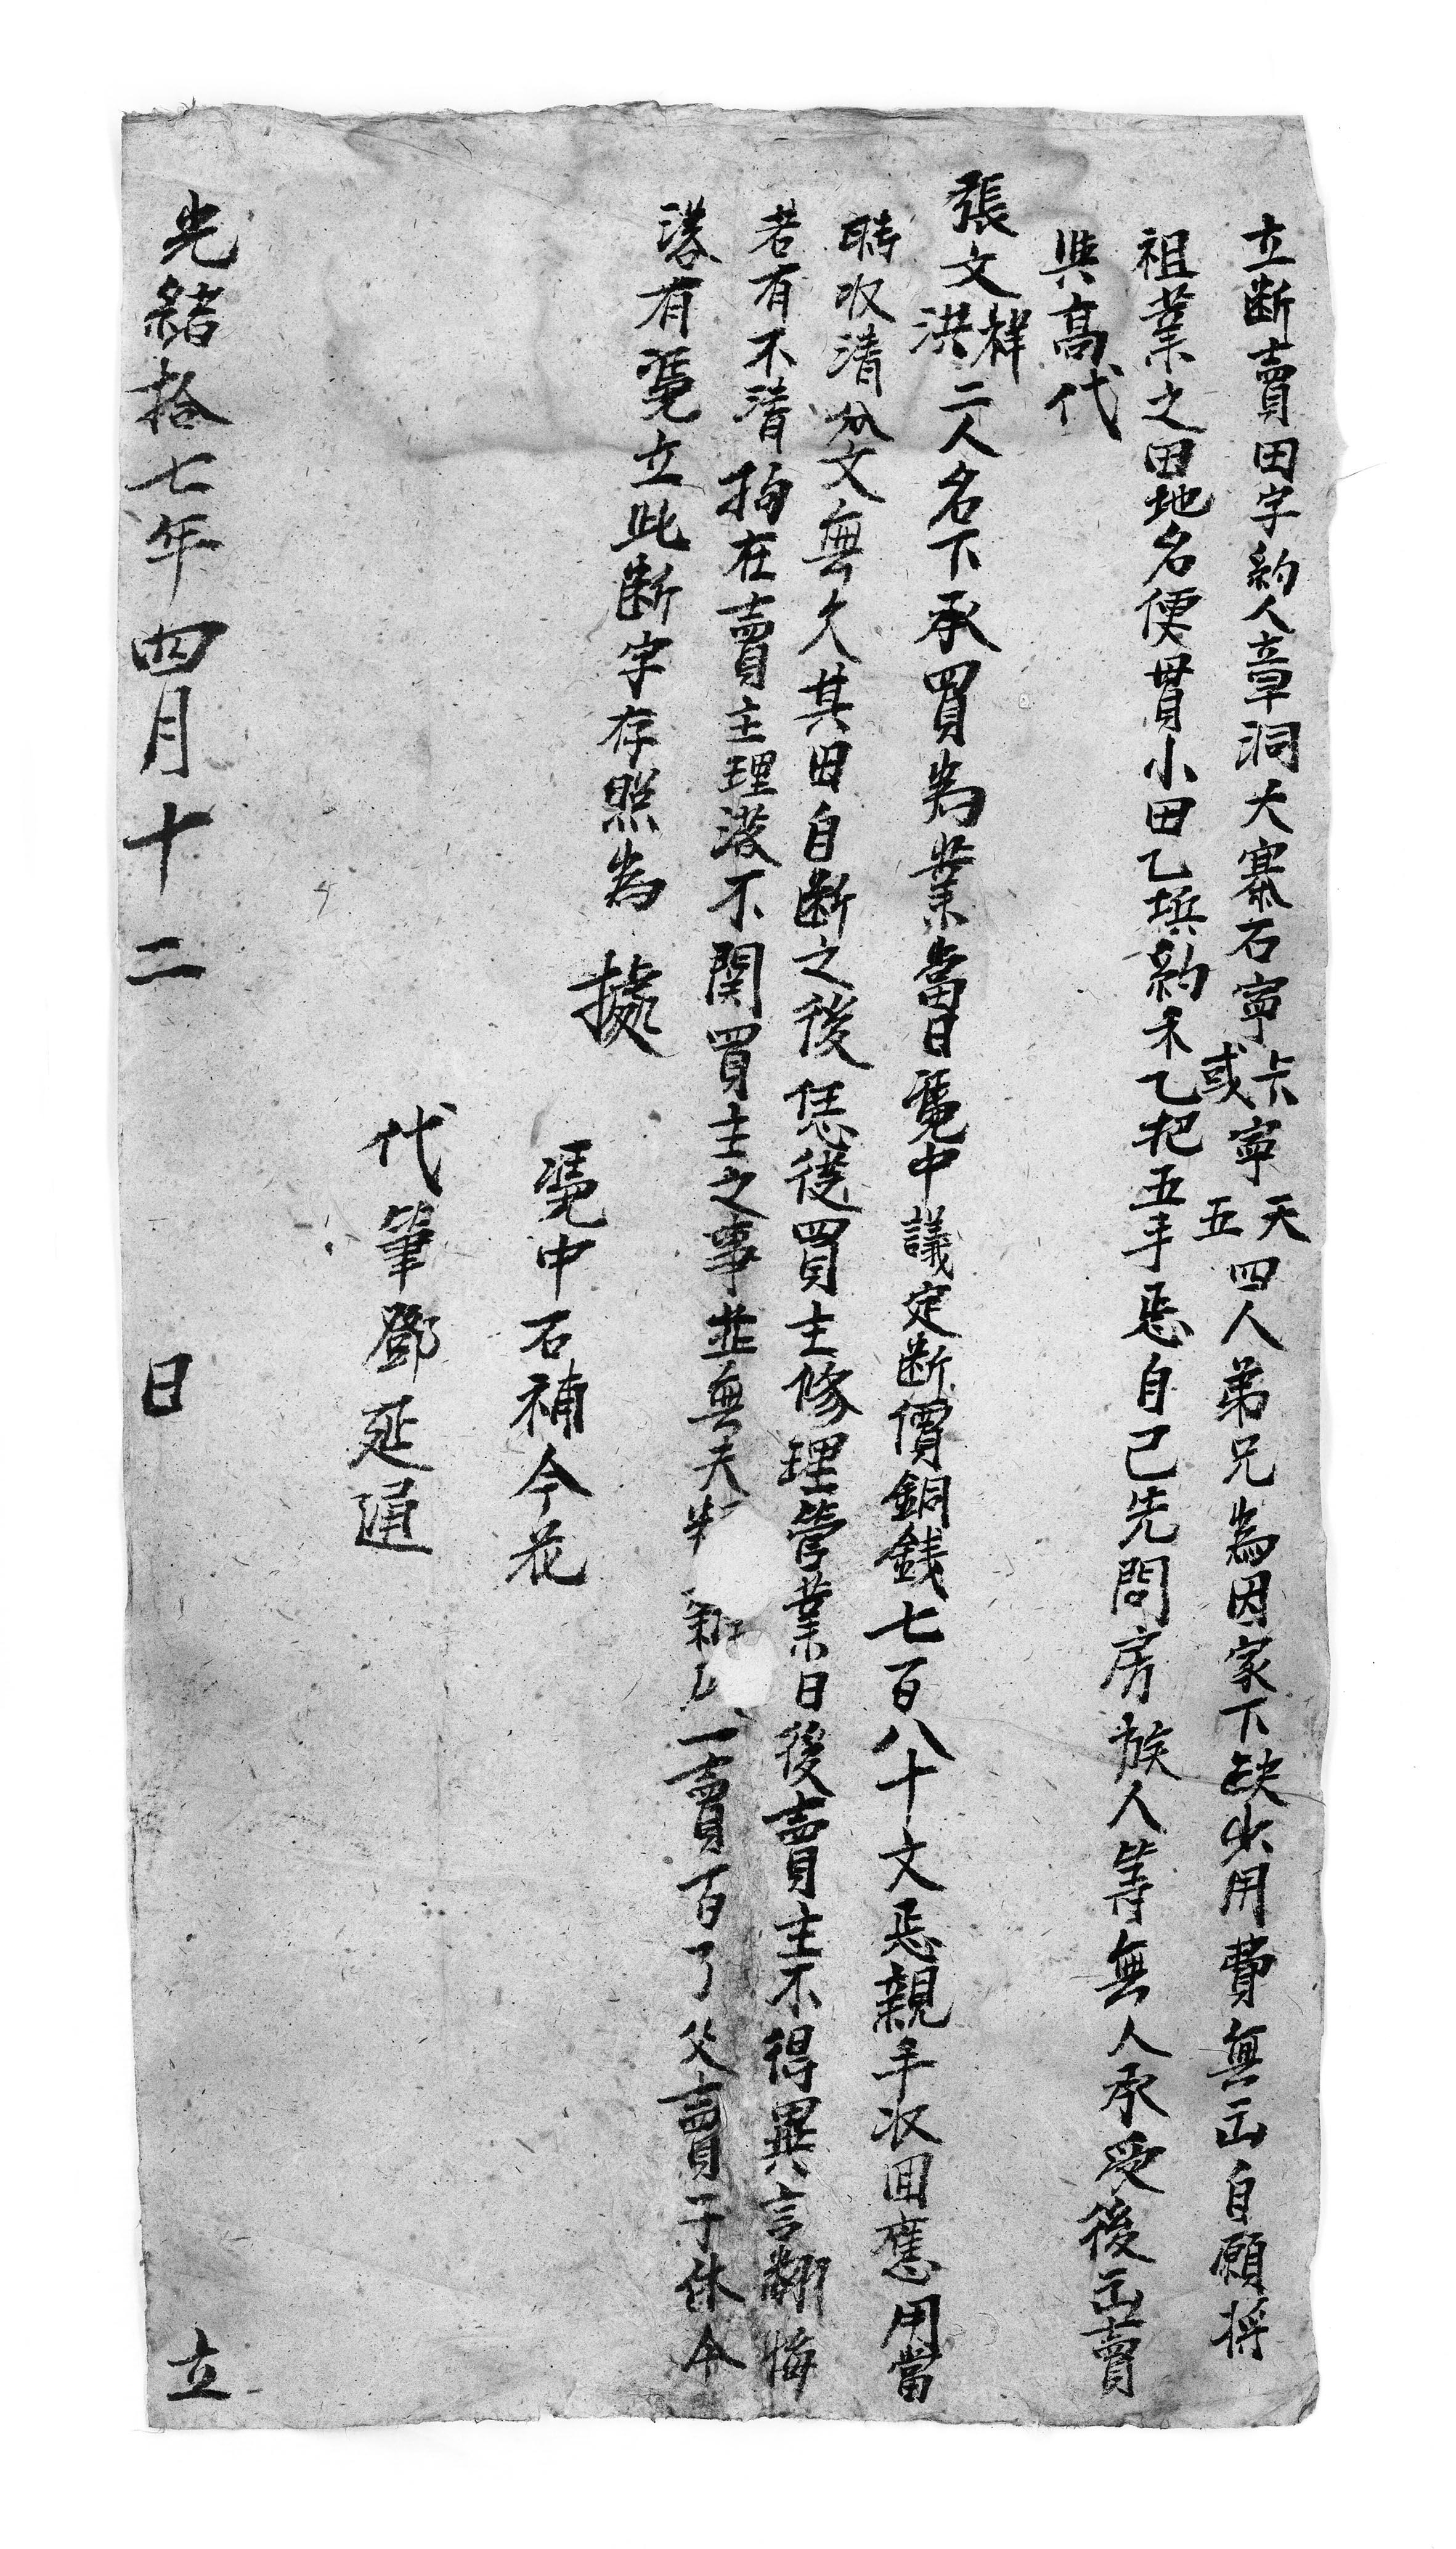 立断賣田字約人章洞大寨石寧卡或寧天五四人弟兄為因家下缺少用費無出自願將
祖業之田地名便貫小田乙坵約禾乙把五手悉自己先問房族人等無人承受後出賣
與高代
張文祥洪二人名下承買為業當日凴中議定断價銅銭七百八十文悉親手收囬應用當
時收清分文無欠其田自断之後恁從買主修理管業日後賣主不得異言翻悔
若有不清拘在賣主理落不関買主之事並無夫 一賣百了父賣子休今
落有凴立此断字存照為據
凴中石補今花
代筆鄧延通
光緒拾七年四月十二日立